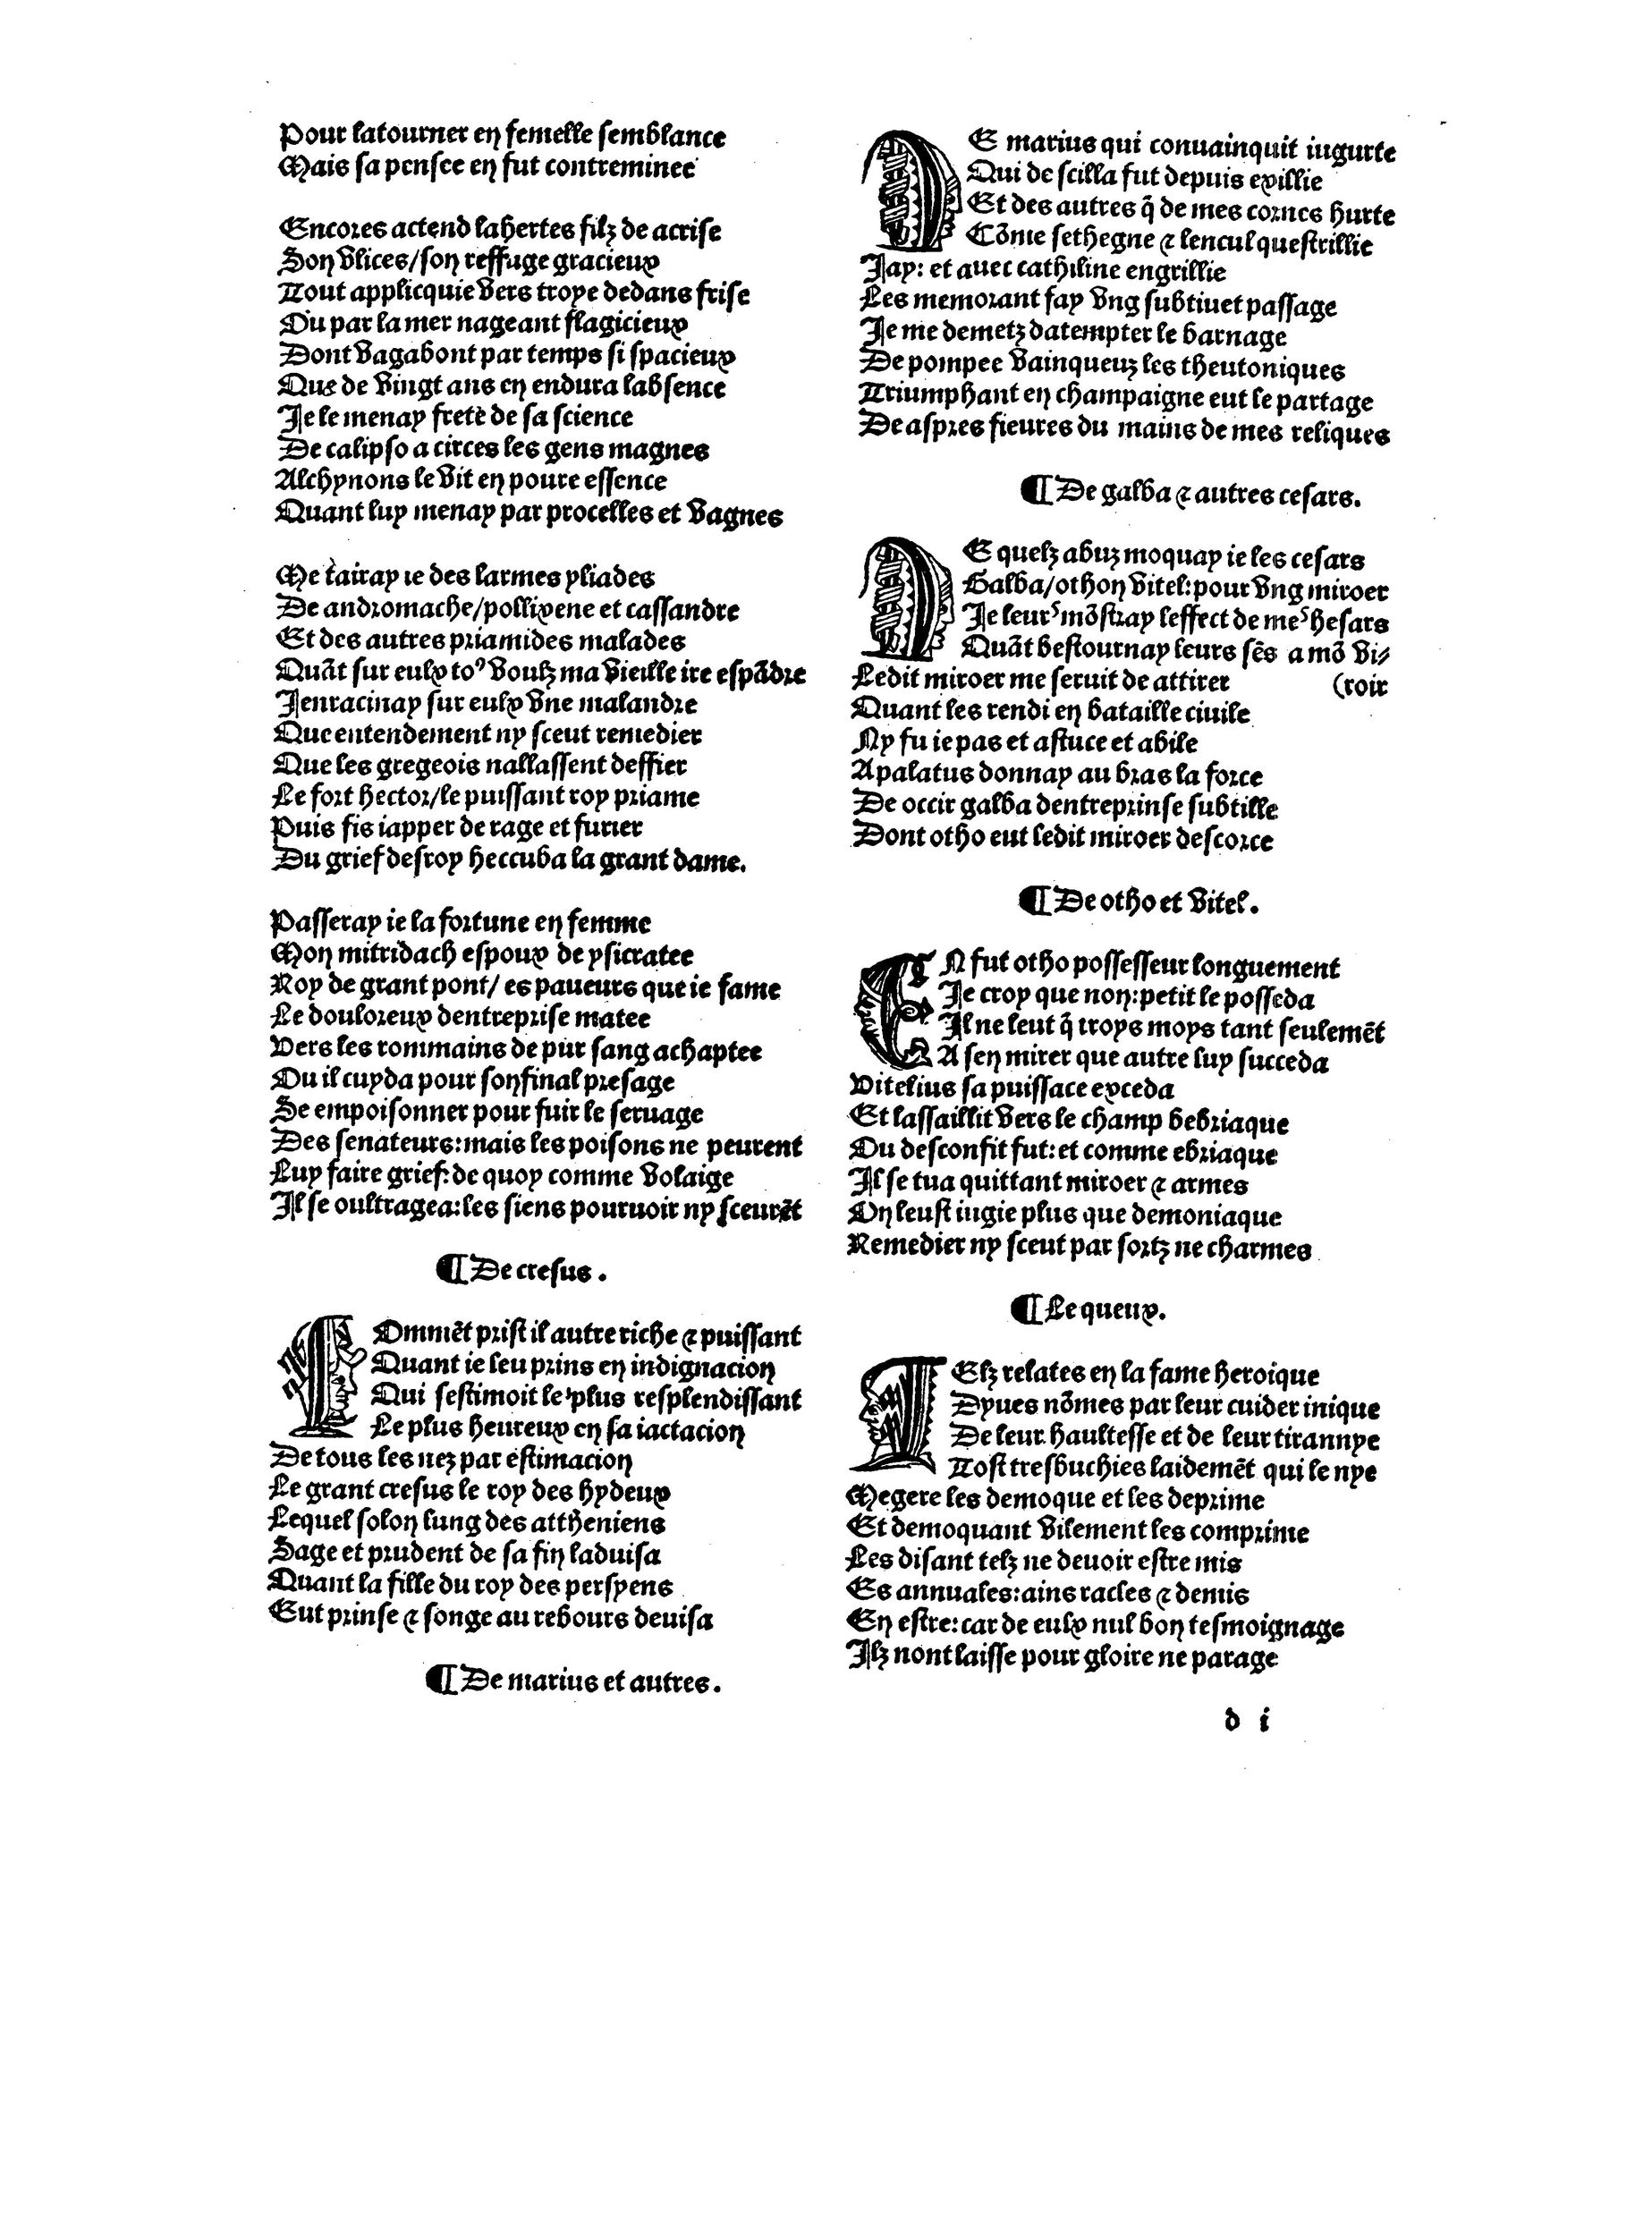 Pour latourner en femelle semblance
Mais sa pensee en fut contreminee
Encores actend lahertes filz de acrise
Son vlices/son reffuge gracieux
Tout applicquie vers troye dedans frise
Ou par la mer nageant flagicieux
Dont vagabont par temps si spacieux
Que de vingt ans en endura labsence
Je le menay frete de sa science
De calipso a circes les gens magnes
Alchynons le vit en poure essence
Quant luy menay par procelles et vagnes
Me tairay ie des larmes yliades
De andromache/pollixene et cassandre
Et des autres priamides malades
Quãt sur eulx toꝰ voulz ma vieille ire espãdre
Jenracinay sur eulx vne malandre
Que entendement ny sceut remedier
Que les gregeois nallassent deffier
Le fort hector/le puissant roy priame
Puis fis iapper de rage et furier
Du grief desroy heccuba la grant dame.
Passeray ie la fortune en femme
Mon mitridach espoux de ysicratee
Roy de grant pont/ es paueurs que ie fame
Le douloreux dentreprise matee
Vers les rommains de pur sang achaptee
Ou il cuyda pour son final presage
Se empoisonner pour fuir le seruage
Des senateurs:mais les poisons ne peurent
Luy faire grief:de quoy comme volaige
Il se oultragea:les siens pouruoir ny sceurẽt
¶ De cresus .
Ommẽt prist il autre riche ⁊ puissant
Quant ie leu prins en indignacion
Qui sestimoit le plus resplendissant
Le plus heureux en sa iactacion
De tous les nez par estimacion
Le grant cresus le roy des hydeux
Lequel solon lung des attheniens
Sage et prudent de sa fin laduisa
Quant la fille du roy des persyens
Eut prinse ⁊ songe au rebours deuisa
¶ De marius et autres .
DE marius qui conuainquit iugurte
Qui de scilla fut depuis exillie
Et des autres q̃ de mes cornes hurte
Cõme sethegne ⁊ lencul questrillie
Jay: et auec cathiline engrillie
Les memorant fay vng subtiuet passage
Je me demetz datempter le barnage
De pompee vainqueuz les theutoniques
Triumphant en champaigne eut le partage
De aspres fieures du mains de mes reliques
¶ De galba ⁊ autres cesars.
DE quelz abuz moquay ie les cesars
Galba/othon vitel:pour vng miroer
Je leurˢ mõstray leffect de meˢ hesars
Quãt bestournay leurs sẽs a mõ vi⸗
Ledit miroer me seruit de attirer (roir
Quant les rendi en bataille ciuile
Ny fu ie pas et astuce et abile
Apalatus donnay au bras la force
De occir galba dentreprinse subtille
Dont otho eut ledit miroer descorce
¶ De otho et vitel .
EN fut otho possesseur longuement
Je croy que non:petit le posseda
Il ne leut q̃ troys moys tant seulemẽt
A sen mirer que autre luy succeda
Vitelius sa puissace exceda
Et lassaillit vers le champ bebriaque
Ou desconfit fut:et comme ebriaque
Il se tua quittant miroer ⁊ armes
On leust iugie plus que demoniaque
Remedier ny sceut par sortz ne charmes
¶ Le queux.
TElz relates en la fame heroique
Dyues nõmes par leur cuider inique
De leur haultesse et de leur tirannye
Tost tresbuchies laidemẽt qui le nye
Megere les demoque et les deprime
Et demoquant vilement les comprime
Les disant telz ne deuoir estre mis
Es annuales:ains racles ⁊ demis
En estre:car de eulx nul bon tesmoignage
Ilz nont laisse pour gloire ne parage
d i